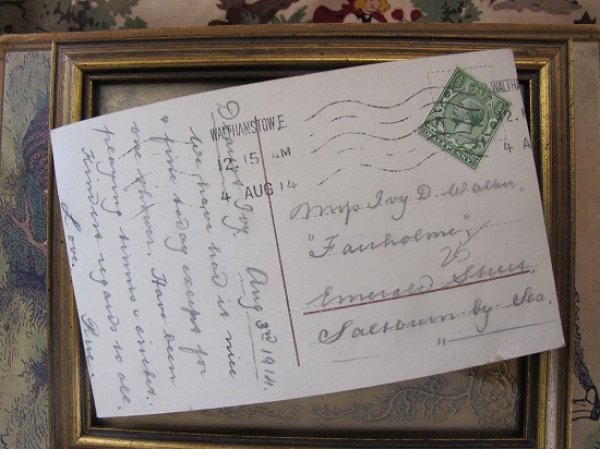 WALTHAMSTOW. E.
12 15 AM
4 AUG 14
WALTH
12.
4 A
Aug 3rd 1914.
Dearest Ivy.
We have had it nice
& fine today except for
one shower. Have been
playing tennis & cricket.
Kindest regards to all.
Love.
Miss Ivy D. Walker,
"Fairholme",
Emerald Street,
Saltburn-by-Sea.
"